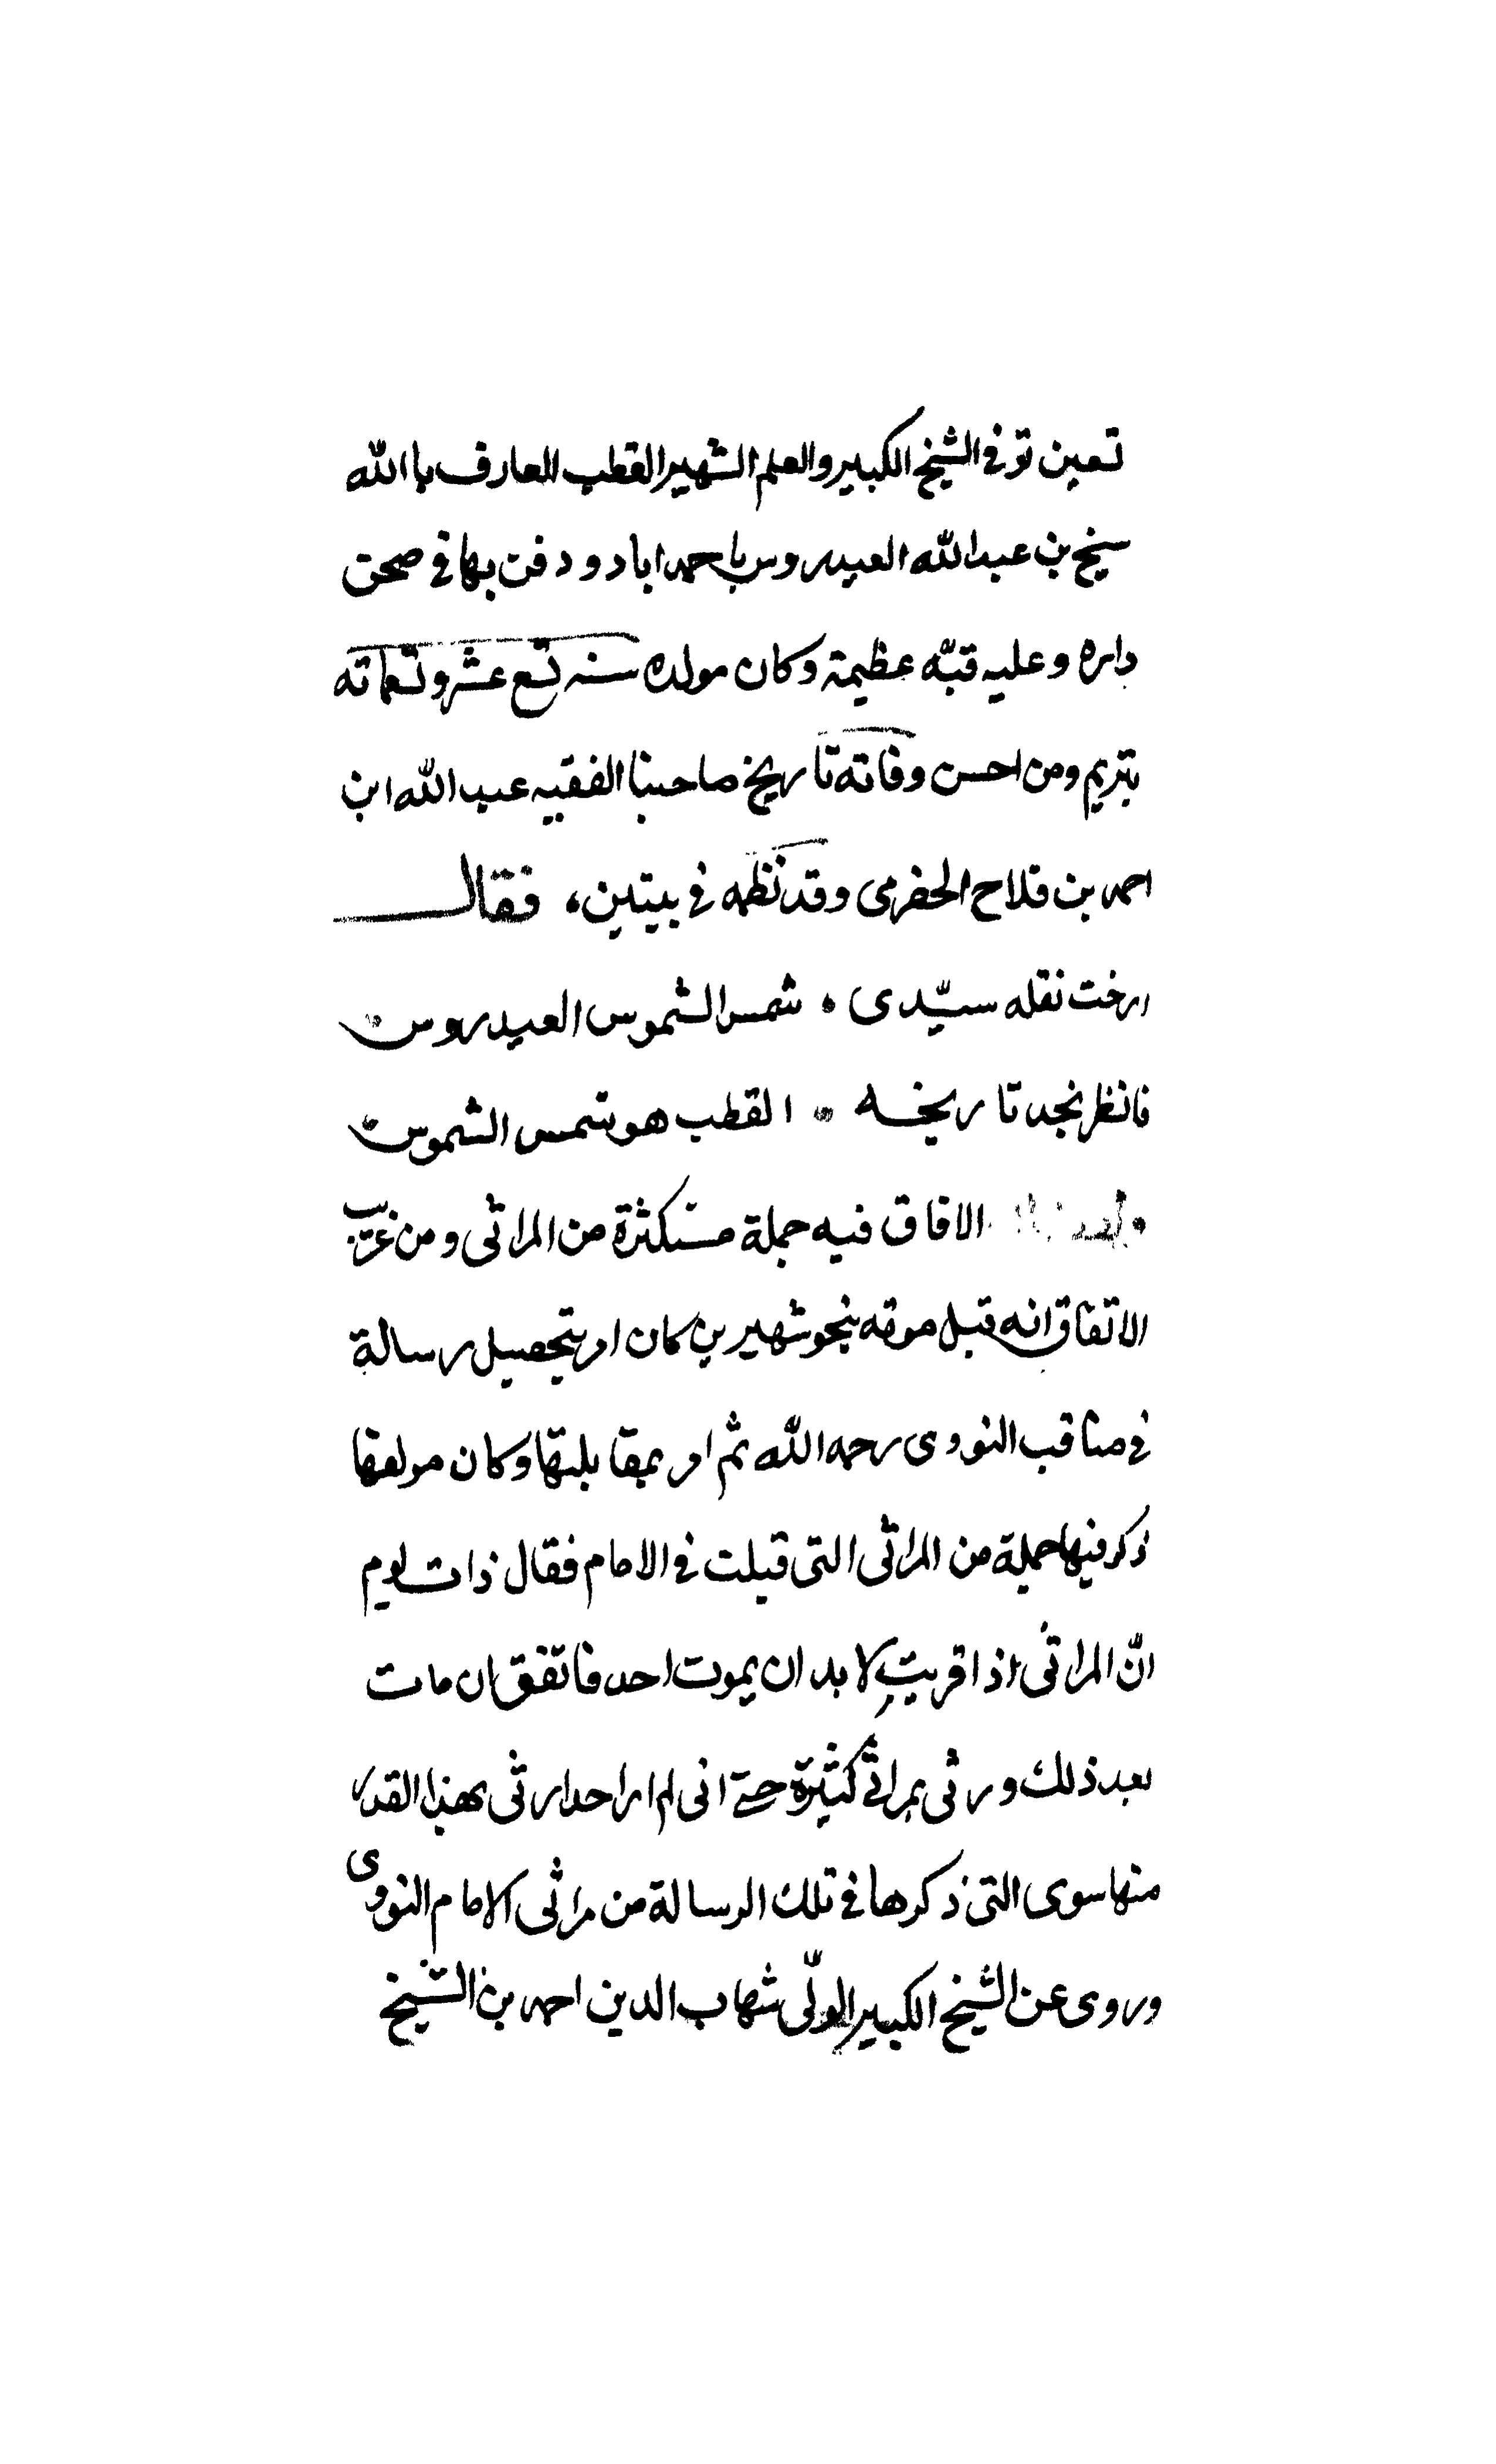 تسعين توفى الشيخ الكبير والعلم الشهير القطب العارف باالله
شيخ بن عبدالله العيدروس باحمداباد ودفن بها فى صحن
داره وعليه قبّه عظيمة وكان مولده سنه تسع عشر وتسعماته
بتريم ومن احسن وفاته تاريخ صاحبنا الفقيه عبدالله ابن
احمد بن فلاح الحضرمى وقد نظمه فى بيتين، فقال
ارخت نقله سيّدى • شمس الشموس العيدروس
فانظر تجد تاريخه • القطب هو شمس الشموس
الافاق فيه جملة مستكثرة من المراثى ومن غريب
الاتفاق انه قبل موته بنحو شهرين كان امر بتحصيل رسالة
فى مناقب النووى رحمه الله ثم امر بمقابلتها وكان مولفها
ذكر فيها جملة من المراثى التى قيلت فى الامام فقال ذات يوم
انّ المراثى اذا قريت لابد ان يموت احد فاتفق ان مات
بعد ذلك ورثى بمراثى كثيرة حتى انى لم ار احدا رثى بهذا القدر
منها سوى التى ذكرها فى تلك الرسالة من مراثى الامام النووى
وروى عن الشيخ الكبير الولّى شهاب الدين احمد بن الشّيخ